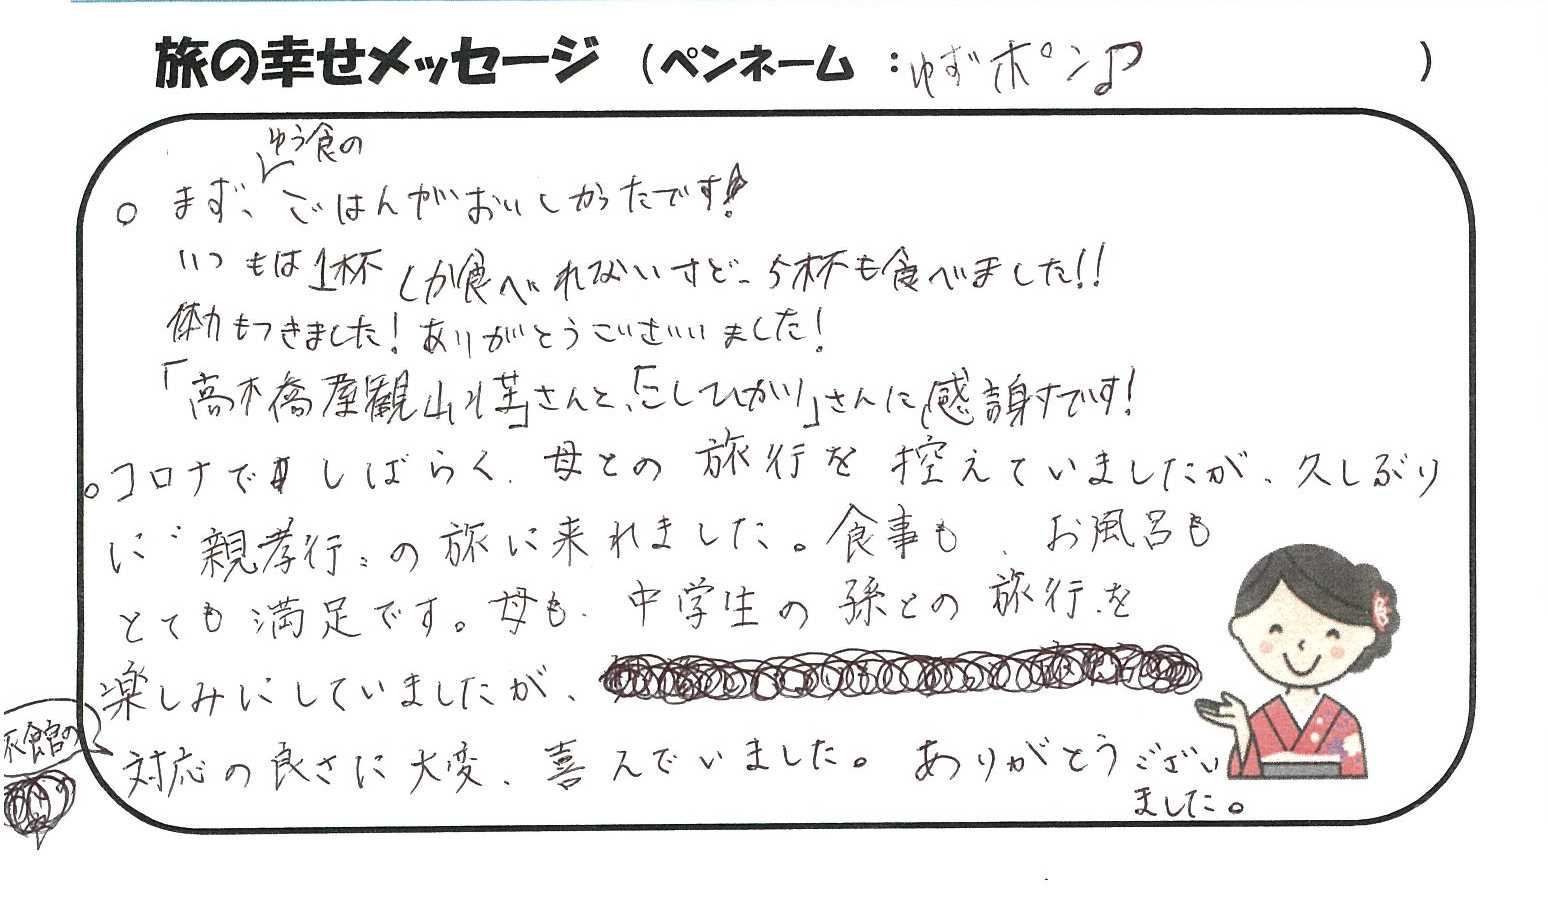 旅の幸せメッセージ (ペンネーム :ゆずポン♪ )
ゆう食の
○ まず、ごはんがおいしかったです!
いつもは1杯しか食べれないけど、5杯も食べました!!
体力もつきました! ありがとうございました!
「高木橋屋観山荘」さんと、「こしひかり」さんに感謝です!
○コロナで しばらく、母との旅行を控えていましたが、久しぶり
に"親孝行"の旅に来れました。食事も、お風呂も
とても満足です。母も、中学生の孫との旅行を
楽しみにしていましたが、
旅館の
対応の良さに大変、喜んでいました。ありがとうござい
ました。